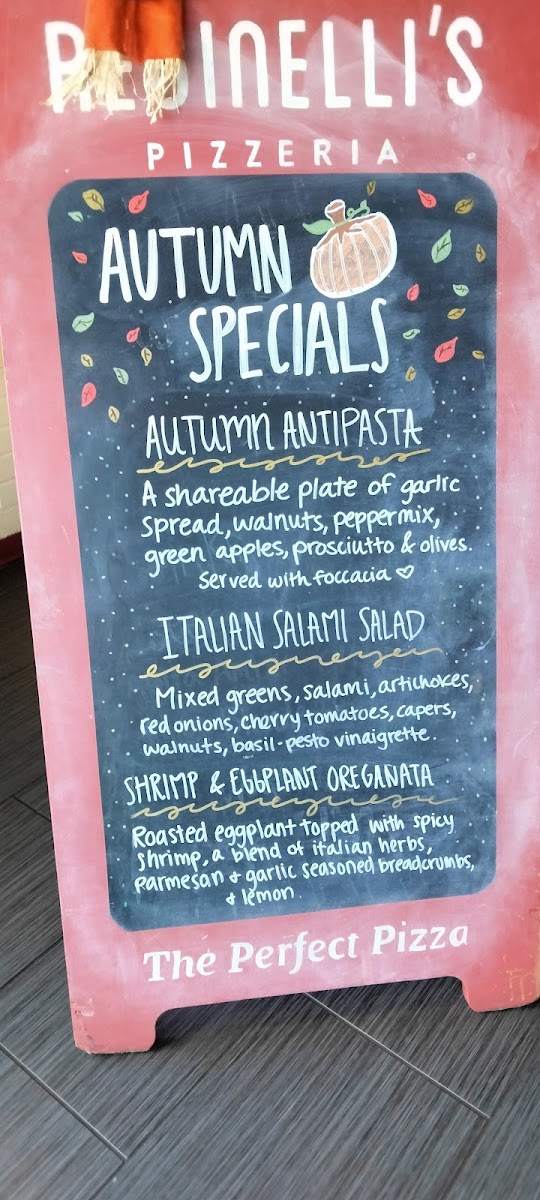 PIZZERIA
AUTUMN
SPECIALS
AUTUMN ANTIPASTA
A shareable plate of garlic
spread, walnuts, peppermix,
green apples, prosciutto & olives.
served with foccacia ♡
ITALIAN SALAMI SALAD
Mixed greens, salami, artichokes,
red onions, cherry tomatoes, capers,
walnuts, basil-pesto vinaigrette.
SHRIMP & EGGPLANT OREGANATA
Roasted eggplant topped with spicy
shrimp, a blend of italian herbs,
parmesan + garlic seasoned breadcrumbs,
+ lemon
The Perfect Pizza